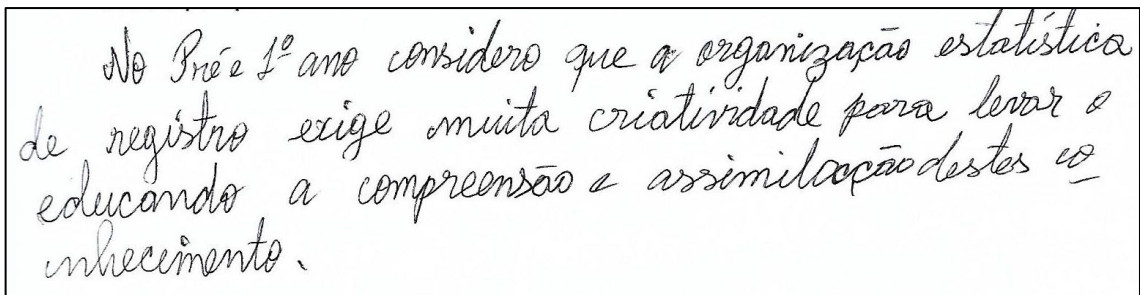 No Pré e 1º ano considero que a organização estatística
de registro exige muita criatividade para levar o
educando a compreensão e assimilação destes co
nhecimento.